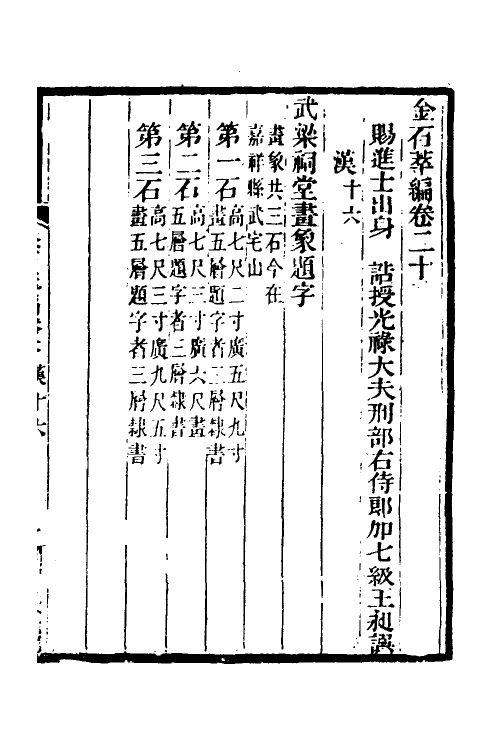 金石萃編卷二十
賜進士出身　誥授光祿大夫刑部右侍郎加七級王昶譔
漢十六
武梁祠堂畫象題字
畫象共三石今在
嘉祥縣武宅山
第一石高七尺二寸廣五尺九寸
畫五層題字者二層隸書
第二石高七尺三寸廣六尺畫
五層題字者三層隸書
第三石高七尺三寸廣九尺五寸
畫五層題字者三層隸書
漢十六